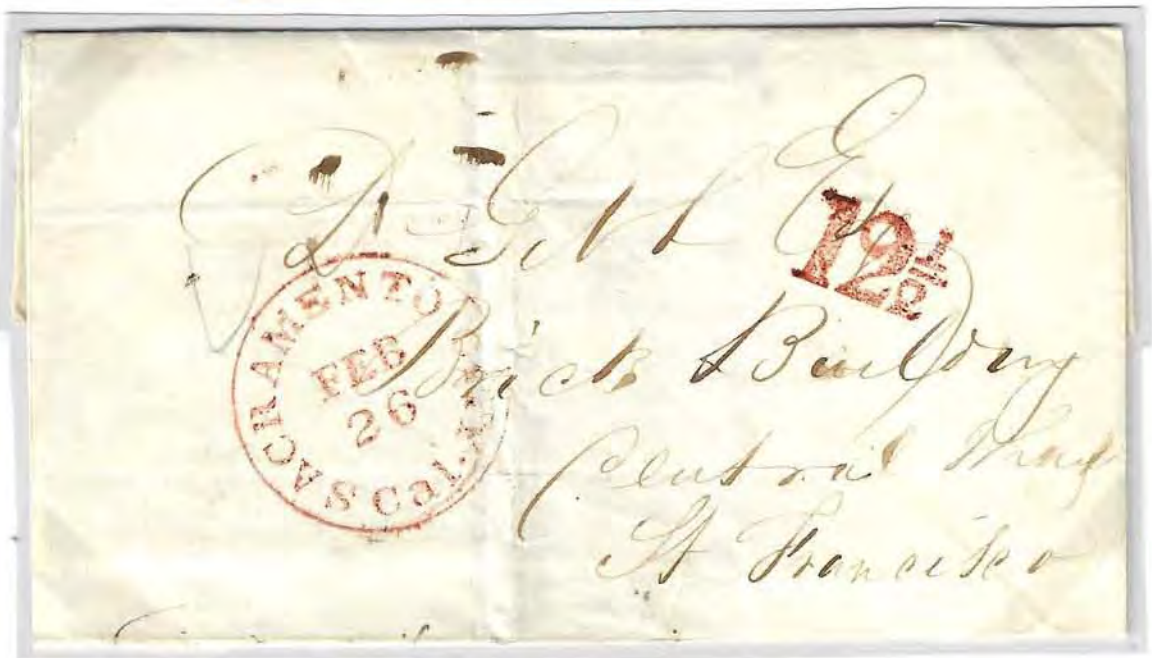 Esq
12½
SACRAMENTO Cal.
FEB
26
Brick Building
Central Wharf
St Francisco